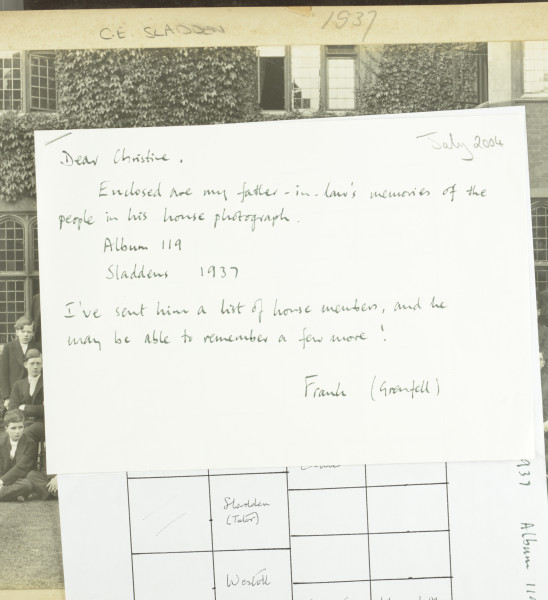 C.E. SLADDEN 1937
July 2004
Dear Christine,
Enclosed are my father-in-law's memories of the
people in his house photograph.
Album 119
Sladdens 1937
I've sent him a list of house members, and he
may be able to remember a few more!
Frank (Grenfell)
Sladden
(Tutor)
937 Album 119